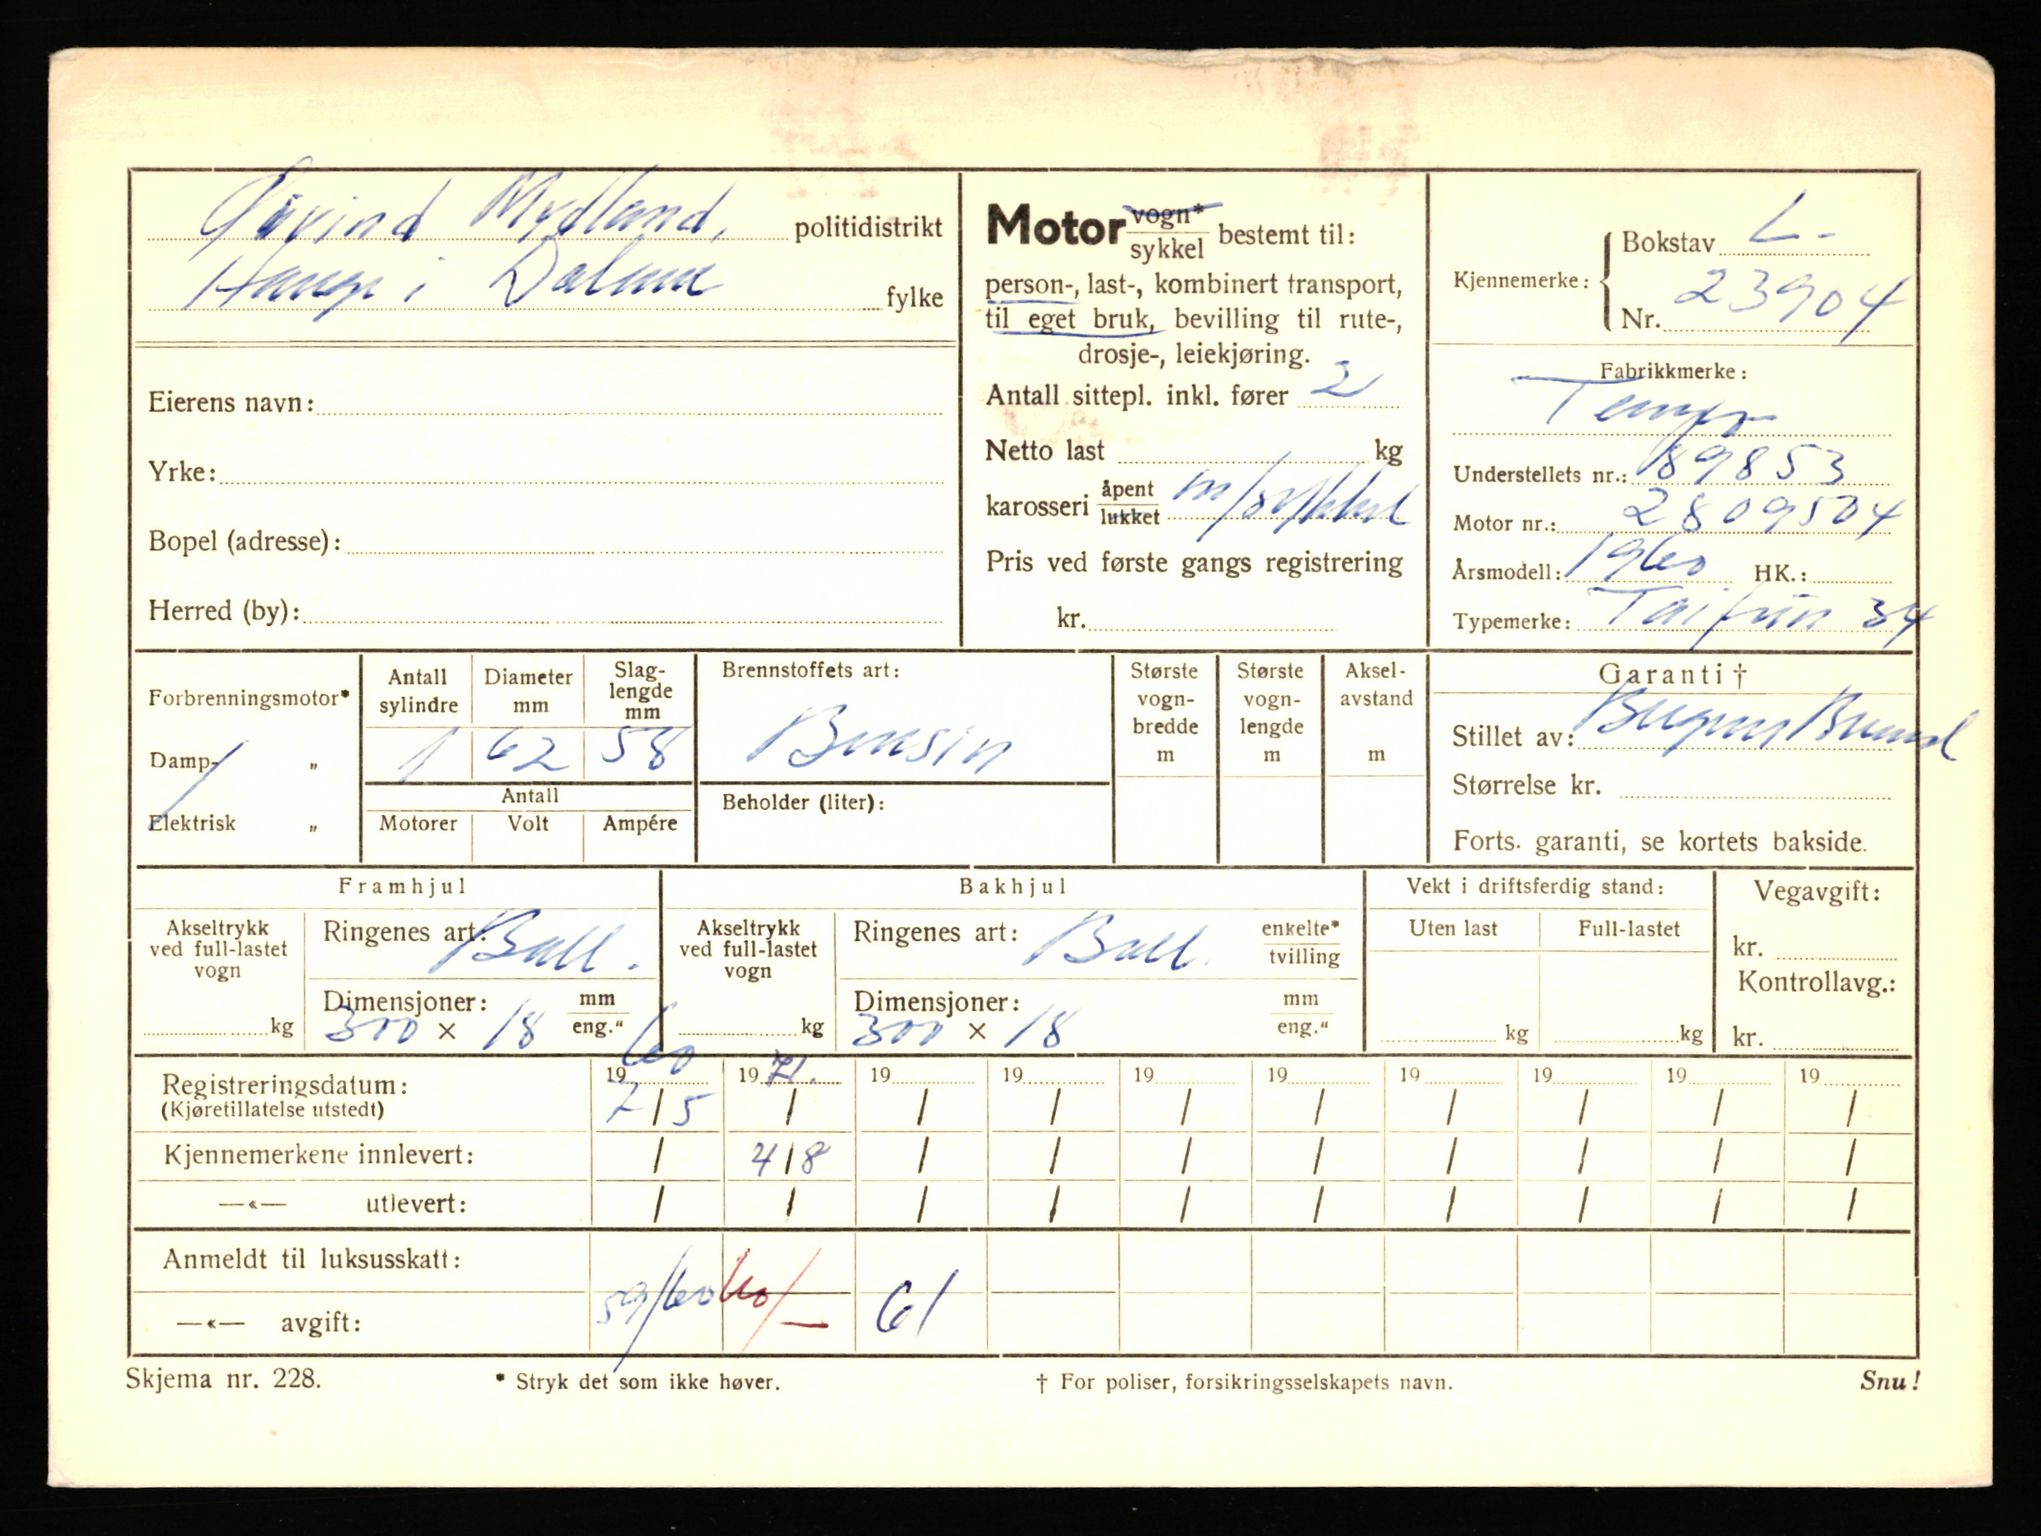 Øivind Mydland, politidistrikt
Hauge i Dalane fylke
Eierens navn:
Yrke:
Bopel (adresse):
Herred (by):
Motor vogn* sykkel bestemt til:
person-, last-, kombinert transport,
til eget bruk, bevilling til rute-,
drosje-, leiekjøring.
Antall sittepl. inkl. fører 2
Netto last kg
karosseri åpent lukket m/sykkel
Pris ved første gangs registrering
kr.
Kjennemerke: Bokstav L-
Nr. 23904
Fabrikkmerke:
Tempo
Understellets nr.: 189853
Motor nr.: 2809504
Årsmodell: 1960 HK.:
Typemerke: Taifun 34
Forbrenningsmotor*
Damp- "
Elektrisk "
Antall sylindre Diameter mm Slag-lengde mm
1 62 58
Antall
Motorer Volt Ampére
Brennstoffets art:
Bensin
Beholder (liter):
Største vogn-bredde m
Største vogn-lengde m
Aksel-avstand m
Garanti †
Stillet av:
Størrelse kr.
Forts. garanti, se kortets bakside.
Framhjul
Akseltrykk ved full-lastet vogn
kg
Ringenes art: Ball.
Dimensjoner: mm
300 × 18 eng."
Bakhjul
Akseltrykk ved full-lastet vogn
kg
Ringenes art: Ball. enkelte* tvilling
Dimensjoner: mm
300 × 18 eng."
Vekt i driftsferdig stand:
Uten last Full-lastet
kg kg
Vegavgift:
kr.
Kontrollavg.:
kr.
Registreringsdatum: 1960 1971. 19 19 19 19 19 19 19 19
(Kjøretillatelse utstedt) 7/5 / / / / / / / / /
Kjennemerkene innlevert: / 4/8 / / / / / / / /
—«— utlevert: / / / / / / / / / /
Anmeldt til luksusskatt:
—«— avgift: 59/60 60/— 61
Skjema nr. 228. * Stryk det som ikke høver. † For poliser, forsikringsselskapets navn. Snu!